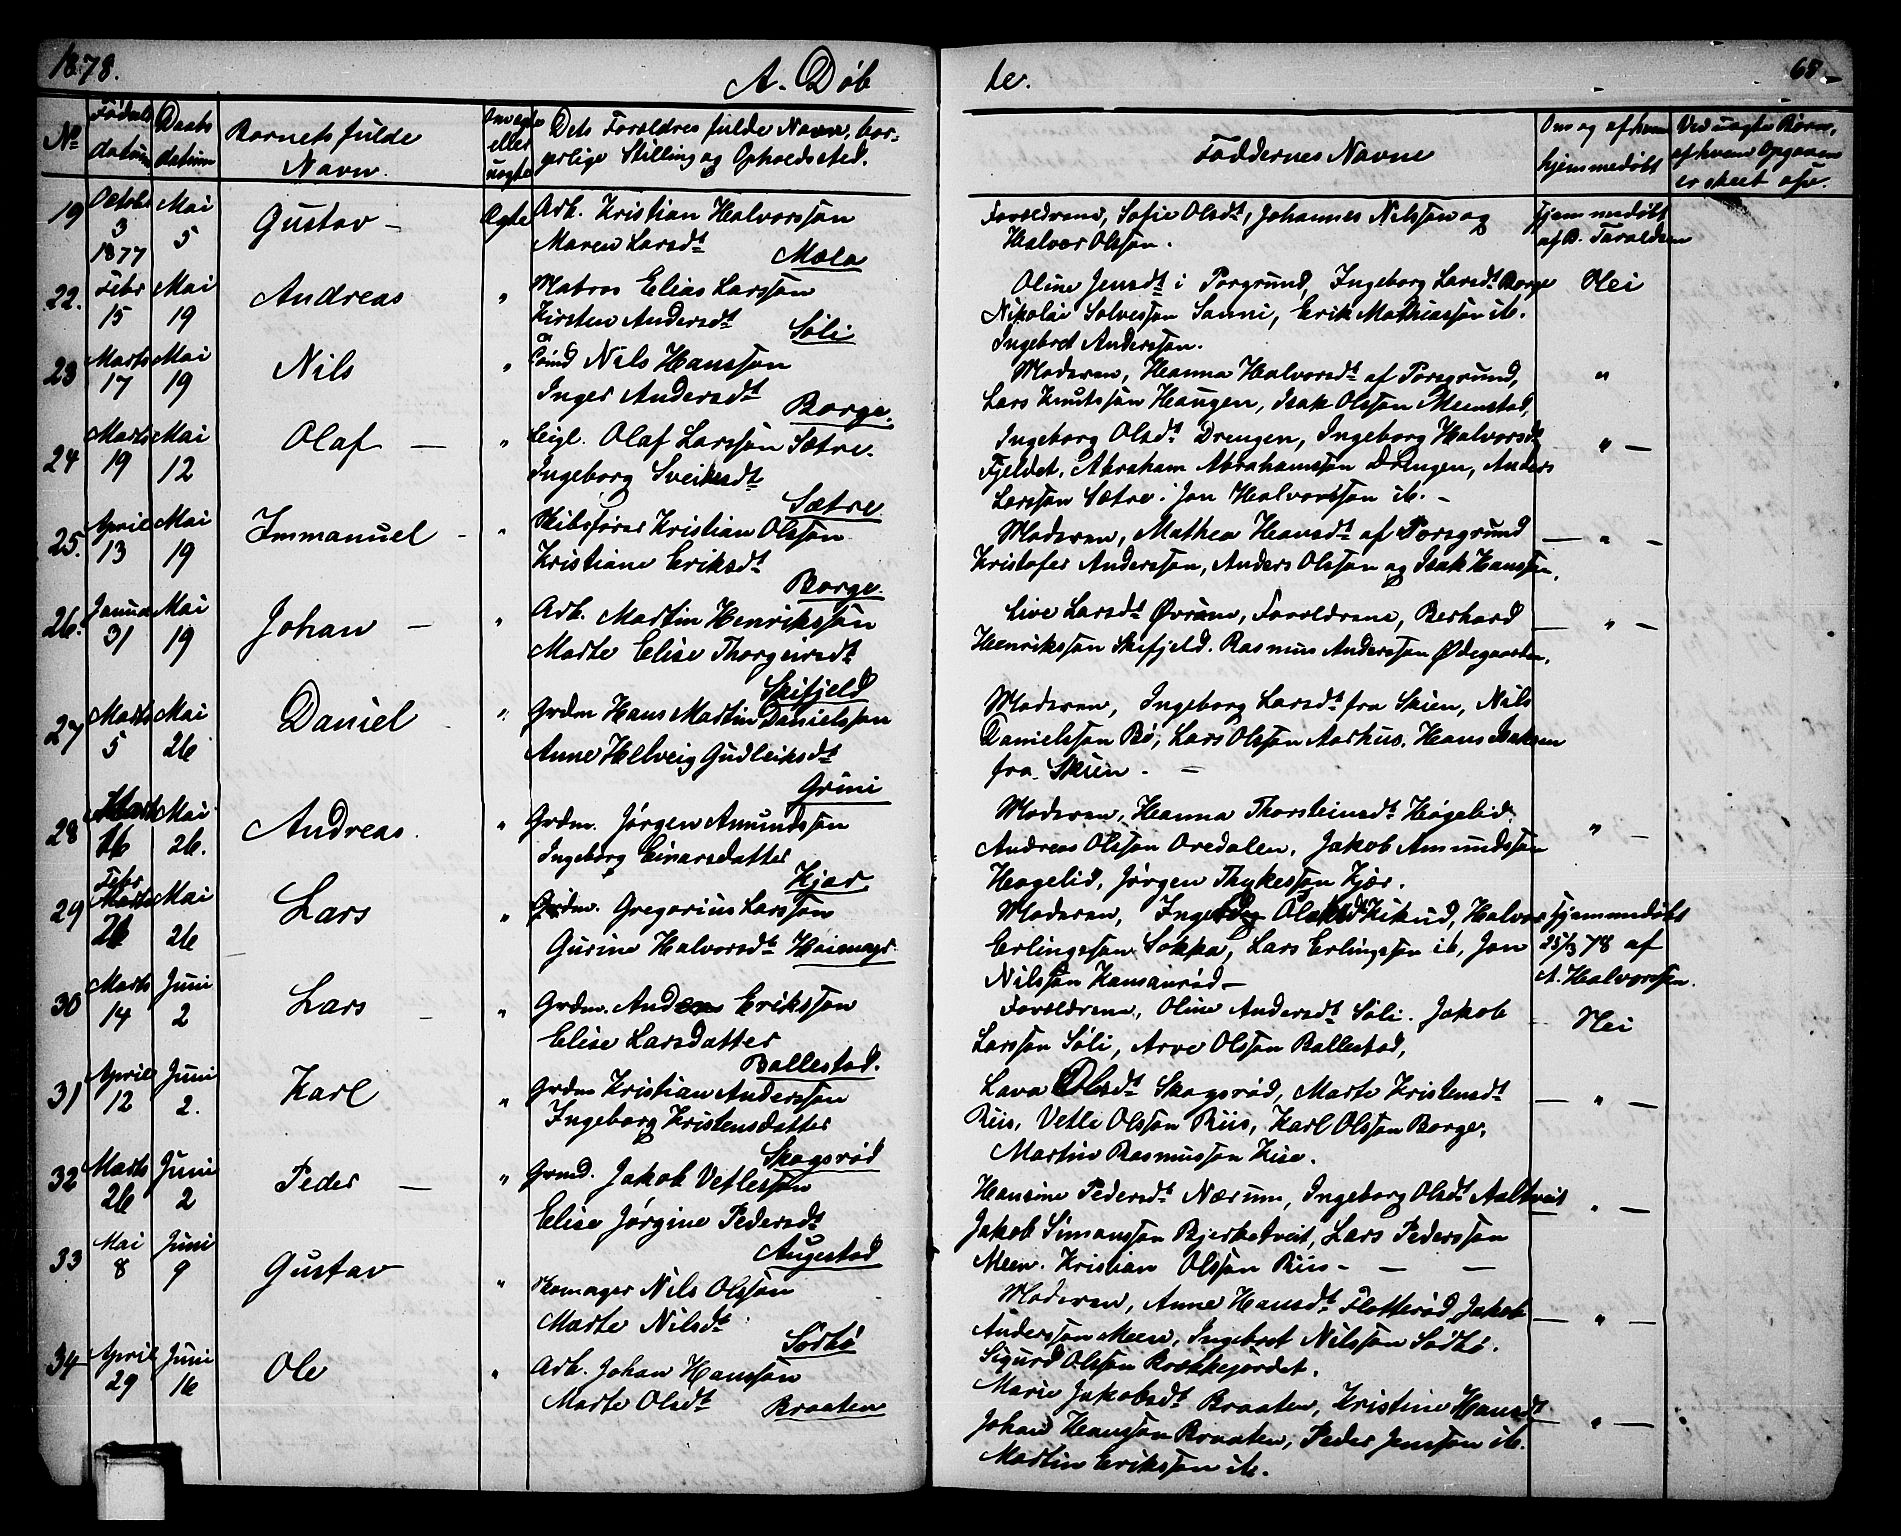 1878.
A. Døb
te.
68
No
Fødsels
datum
Daabs
datum
Barnets fulde
Navn.
Om ægte
eller
uægte
Dets Forældres fulde Navn, bor-
gerlige Stilling og Opholdssted.
Faddernes Navne
Om og af hvem
hjemmedøbt
Ved uægte Børn,
af hvem Opgaven
er skeet osv.
19
Octobr
3
1877
Mai
5
Gustav -
Ægte
Arb. Kristian Halvorssøn
Maren Larsdt
Mæla
Forældrene, Sofie Olsdt, Johannes Nilssøn og
Halvor Olssøn.
Hjemmedøbt
af B. Taraldsen
22.
Febr
15
Mai
19
Andreas
"
Matros Elias Larssøn
Kirsten Andersdt
Søli
Oline Jensdt i Porsgrund, Ingeborg Larsdt Borge
Nikolai Solvessøn Sanni, Erik Mathiassøn ib.
Ingebret Anderssøn.
Nei
23
Marts
17
Mai
19
Nils
"
Nils Hanssøn
Inger Andersdt
Borge.
Moderen, Hanna Halvorsdt af Porsgrund,
Lars Knutssøn Haugen, Isak Olssøn Meenstad,
"
24
Marts
19
Mai
12
Olaf -
"
Leigl. Olaf Larssøn Sætre.
Ingeborg Sveinsdt
Sætre
Ingeborg Olsdt Drengen, Ingeborg Halvorsdt
Fjeldet. Abraham Abrahamssøn Drengen, Anders
Larssøn Sætre. Jan Halvorssøn ib. -
" -
25.
April
13
Mai
19
Immanuel -
"
Skibsfører Kristian Olssøn
Kristiane Eriksdt
Borge.
Moderen, Mathea Hansdt af Porsgrund
Kristofer Anderssøn, Anders Olssøn og Isak Hanssøn.
- " -
26.
Januar
31
Mai
19
Johan -
"
Arb. Martin Henrikssøn
Marte Elise Thorgeirsdt
Skifjeld
Live Larsdt Øvrum, Forældrene, Berhard
Henrikssøn Skifjeld. Rasmus Anderssøn Ødegaarden.
- " -
27
Marts
5
Mai
26
Daniel -
"
Grdm Hans Martin Danielssøn
Anne Helveig Gudleiksdt
Grini
Moderen, Ingeborg Larsdt fra Skien, Nils
Danielssøn Bø, Lars Olssøn Aarhus. Hans Isaksen
fra Skien. -
28
16
Mai
26.
Andreas.
"
Grdm. Jørgen Amundssøn
Ingeborg Einarsdatter
Kjær
Moderen, Hanna Thorsteinsdt Høgelid.
Andreas Olssøn Oredalen, Jakob Amundssøn
Høgelid, Jørgen Thykessøn Kjær.
" -
29
Febr
26
Mai
26
Lars
"
Grdm. Gregorius Larssøn
Gurine Halvorsdt
Moderen, Halvor
Erlingssøn Søkka, Lars Erlingssøn ib, Jon
Nilssøn -
Hjemmedøbt
25/3 78 af
A. Halvorssen.
30
Marts
14
Juni
2
Lars -
"
Grdm. Anders Erikssøn
Elise Larsdatter
Ballestad.
Forældrene, Oline Andersdt Søli. Jakob
Larssøn Søli, Arve Olssøn Ballestad,
- Nei
31
April
12
Juni
2.
Karl
"
Grdm Kristian Anderssøn
Ingeborg Kristensdatter
Skogsrød
Lava Olsdt Skogsrød, Marte Kristensdt
Riis, Vetle Olssøn Riis, Karl Olssøn Borge,
Martin Rasmussøn Kise.
- " -
32
Marts
26
Juni
2
Peder -
"
Grmd. Jakob Vetlessøn
Elise Jørgine Pedersdt
Augestad
Hansine Pedersdt Nærum, Ingeborg Olsdt Aaltveit
Jakob Simonssøn Bjerketveit, Lars Pederssøn
Meen. Kristian Olssøn Riis - - -
- " -
33
Mai
8
Juni
9
Gustav
"
Skomager Nils Olssøn
Marte Nilsdt
Sørbø
Moderen, Anne Hansdt Flotterød, Jakob
Anderssøn Meen, Ingebret Nilssøn Sørbø.
Sigurd Olssøn Brækkejordet.
- " -
34
April
29
Juni
16
Ole
"
Arb. Johan Hanssøn
Marte Olsdt
Braaten
Marie Jakobsdt Braaten, Kristine Hansdt
Johan Hanssøn Braaten, Peder Jenssøn ib.
Martin Erikssøn ib.
- " -